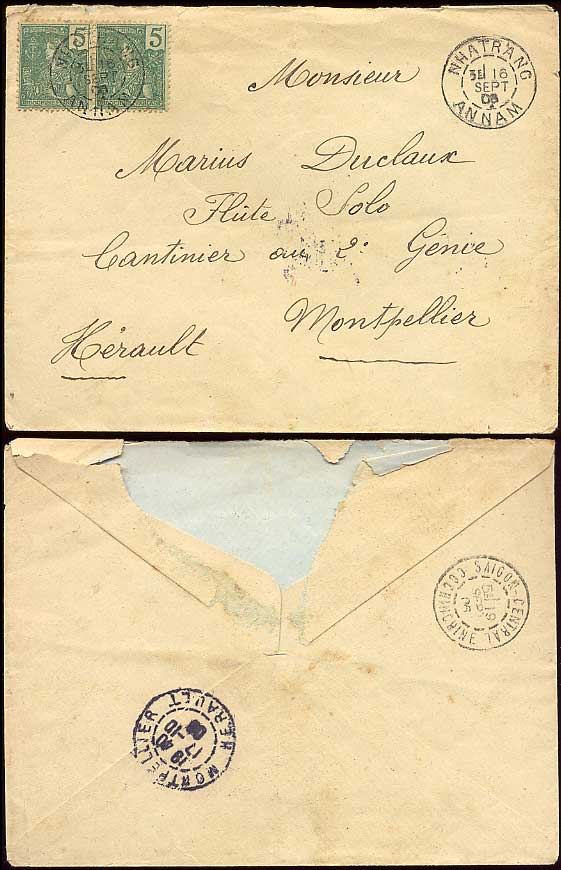 5 5
NHATRANG
3E 16
SEPT
ANNAM
Monsieur
Marius Duclaux
Flûte Solo
Cantinier au 2e Génie
Montpellier
Hérault
SAIGON-CENTRAL COCHINCHINE
19
MONTPELLIER HERAULT
19 40
17-10